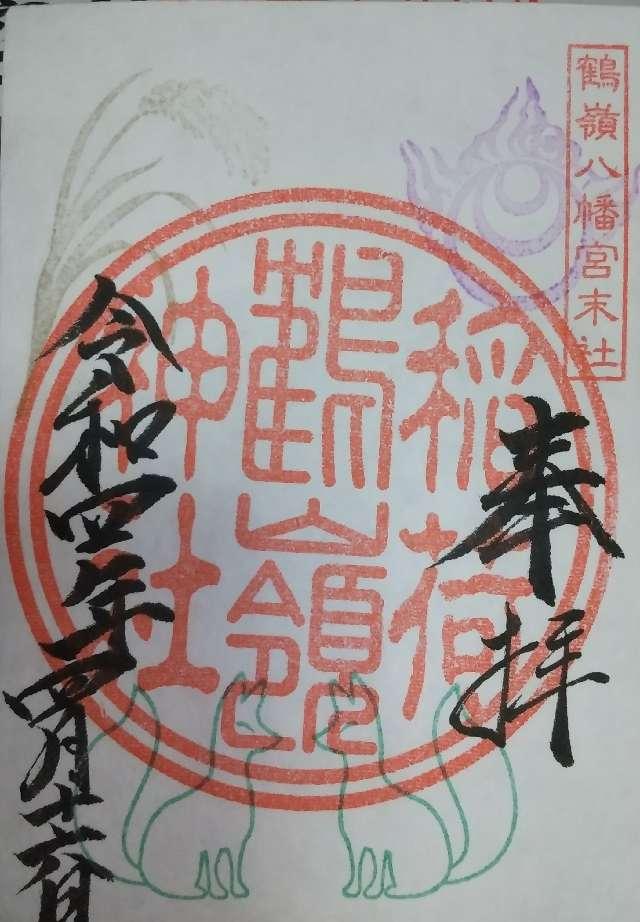 鶴嶺八幡宮末社
奉拝
稲荷
鶴嶺
神社
令和四年四月十六日